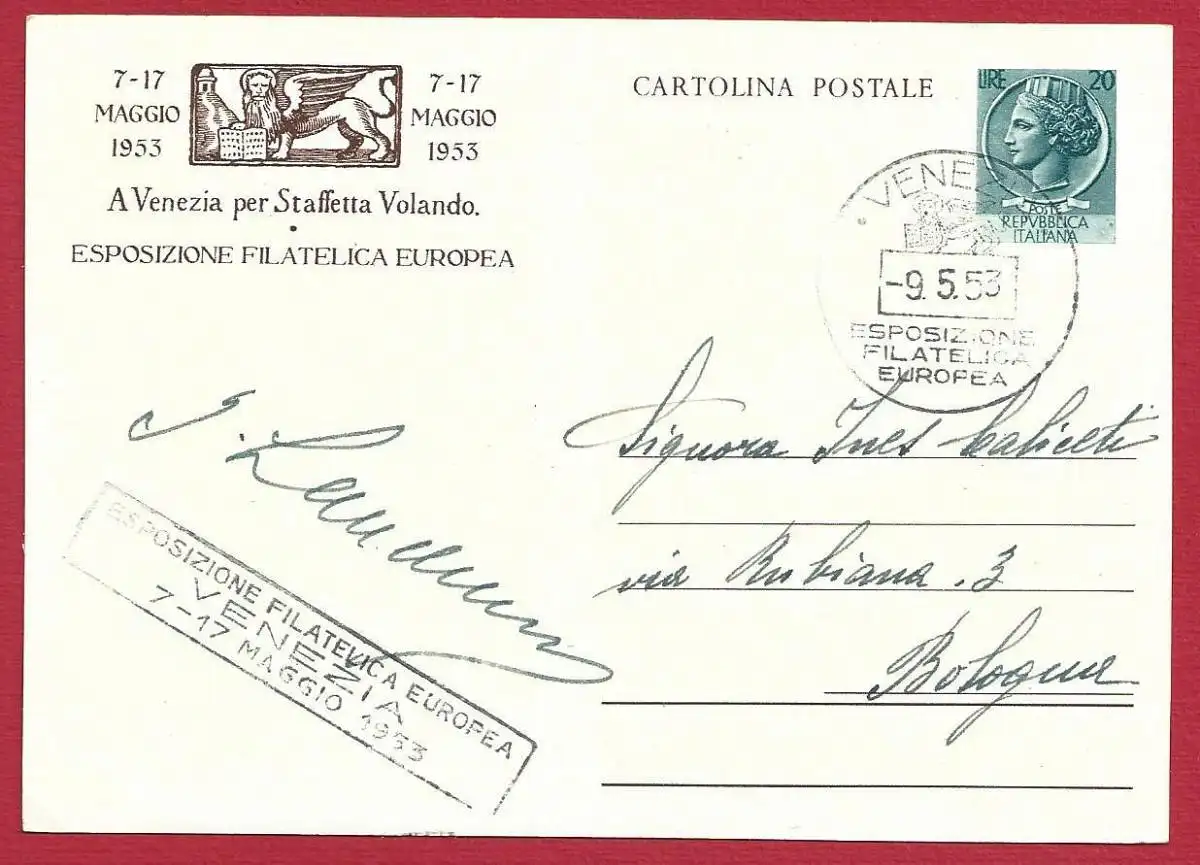 7-17
MAGGIO
1953
7-17
MAGGIO
1953
A Venezia per Staffetta Volando.
ESPOSIZIONE FILATELICA EUROPEA
CARTOLINA POSTALE
LIRE 20
POSTE
REPVBBLICA
ITALIANA
VENEZIA
-9.5.53
ESPOSIZIONE
FILATELICA
EUROPEA
Signora Ines Caliceti
via Rubiana . 3
Bologna
ESPOSIZIONE FILATELICA EUROPEA
VENEZIA
7-17 MAGGIO 1953